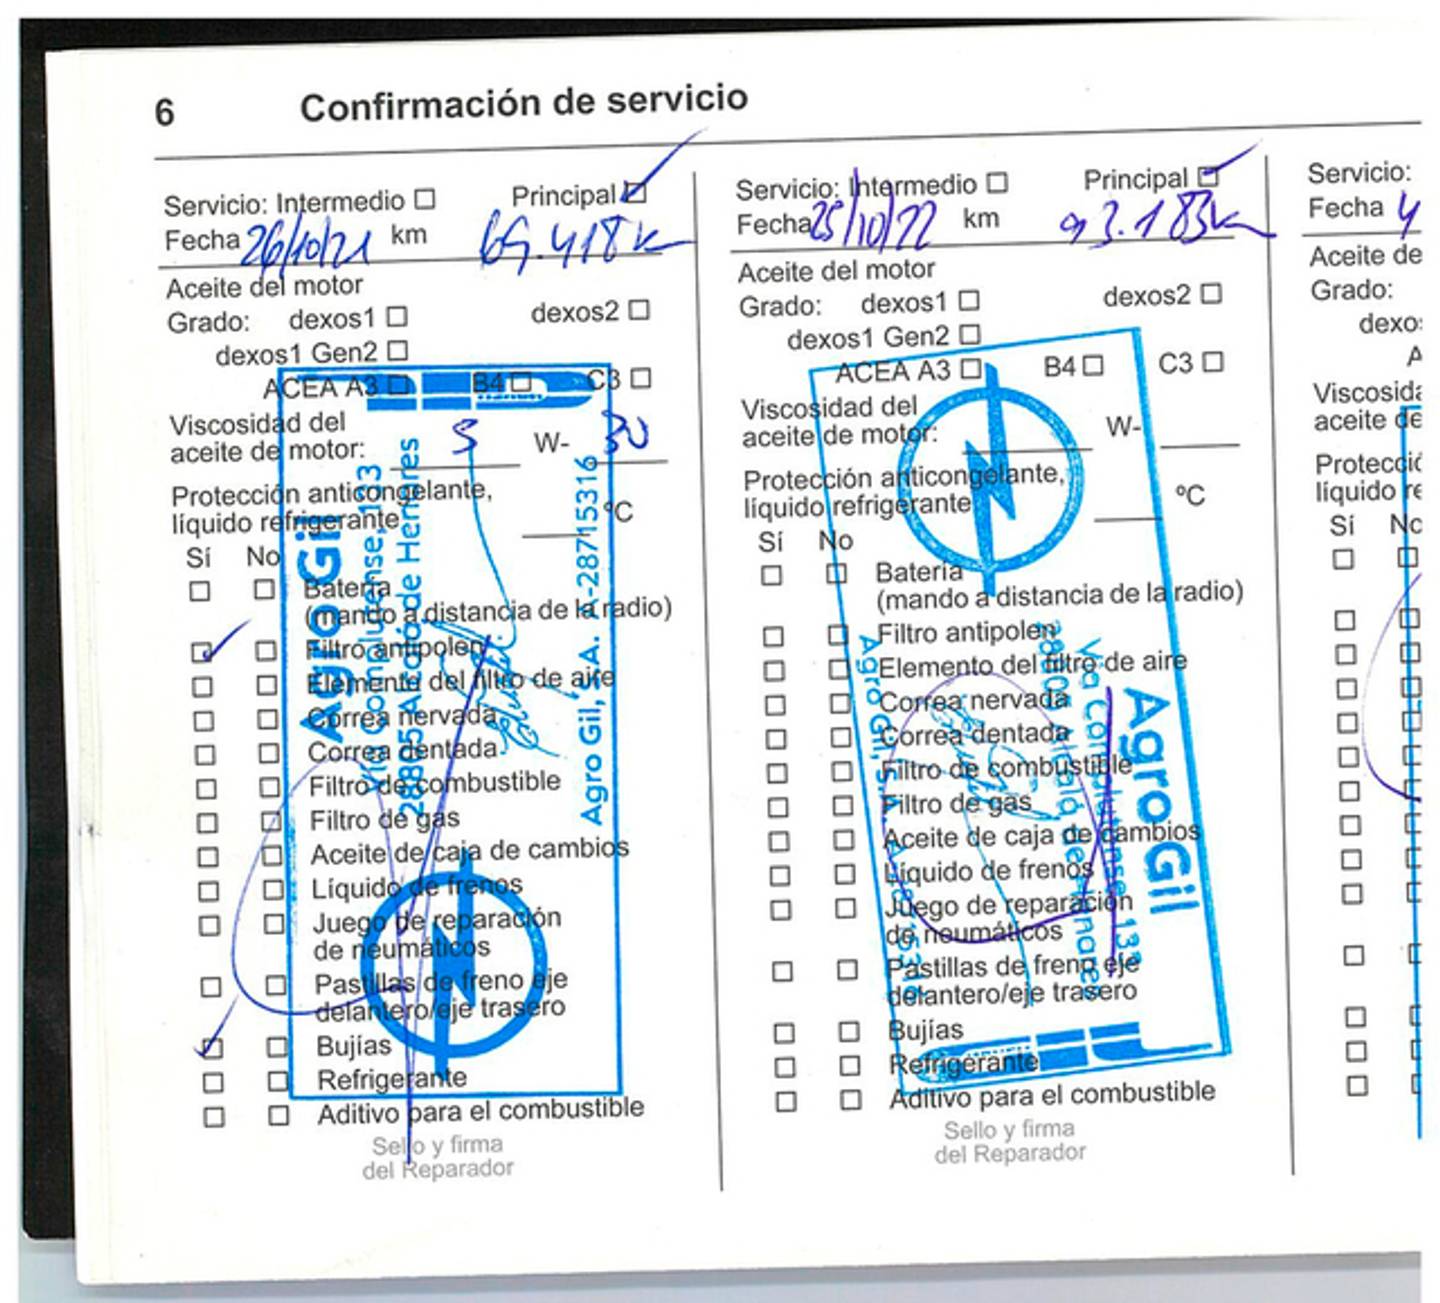 6 Confirmación de servicio
Servicio: Intermedio ☐ Principal ☑
Fecha 26/10/21 km 69.418 k
Aceite del motor
Grado: dexos1 ☐ dexos2 ☐
dexos1 Gen2 ☐
ACEA A3 ☐ B4 ☐ C3 ☐
Viscosidad del
aceite de motor: 5 W- 30
Protección anticongelante,
líquido refrigerante ºC
Sí No
☐ ☐ Batería
(mando a distancia de la radio)
☑ ☐ Filtro antipolen
☐ ☐ Elemento del filtro de aire
☐ ☐ Correa nervada
☐ ☐ Correa dentada
☐ ☐ Filtro de combustible
☐ ☐ Filtro de gas
☐ ☐ Aceite de caja de cambios
☐ ☐ Líquido de frenos
☐ ☐ Juego de reparación
de neumáticos
☐ ☐ Pastillas de freno eje
delantero/eje trasero
☑ ☐ Bujías
☐ ☐ Refrigerante
☐ ☐ Aditivo para el combustible
Sello y firma
del Reparador
Agro Gil
Vía Complutense, 133
28805 Alcalá de Henares
Agro Gil, S.A. A-28715316
Servicio: Intermedio ☐ Principal ☑
Fecha 25/10/22 km 93.183 k
Aceite del motor
Grado: dexos1 ☐ dexos2 ☐
dexos1 Gen2 ☐
ACEA A3 ☐ B4 ☐ C3 ☐
Viscosidad del
aceite de motor: W-
Protección anticongelante,
líquido refrigerante ºC
Sí No
☐ ☐ Batería
(mando a distancia de la radio)
☐ ☐ Filtro antipolen
☐ ☐ Elemento del filtro de aire
☐ ☐ Correa nervada
☐ ☐ Correa dentada
☐ ☐ Filtro de combustible
☐ ☐ Filtro de gas
☐ ☐ Aceite de caja de cambios
☐ ☐ Líquido de frenos
☐ ☐ Juego de reparación
de neumáticos
☐ ☐ Pastillas de freno eje
delantero/eje trasero
☐ ☐ Bujías
☐ ☐ Refrigerante
☐ ☐ Aditivo para el combustible
Sello y firma
del Reparador
Agro Gil
Vía Complutense, 133
28805 Alcalá de Henares
Agro Gil, S.A.
Servicio:
Fecha 4
Aceite de
Grado:
dexos
A
Viscosida
aceite de
Protecció
líquido re
Sí No